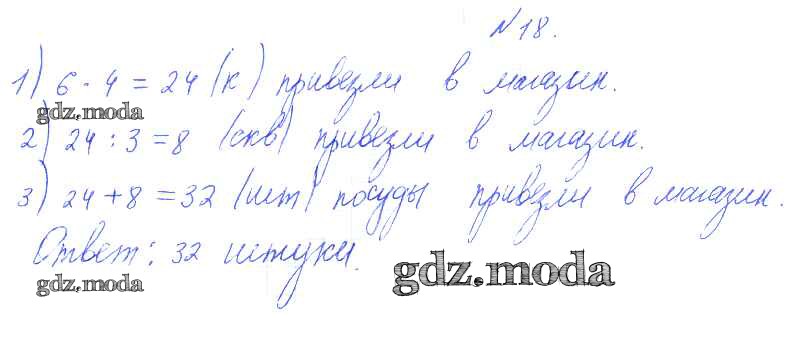 №18.
1) 6 · 4 = 24 (к) привезли в магазин.
gdz.moda
2) 24 : 3 = 8 (скв) привезли в магазин.
3) 24 + 8 = 32 (шт) посуды привезли в магазин.
Ответ: 32 штуки.
gdz.moda
gdz.moda